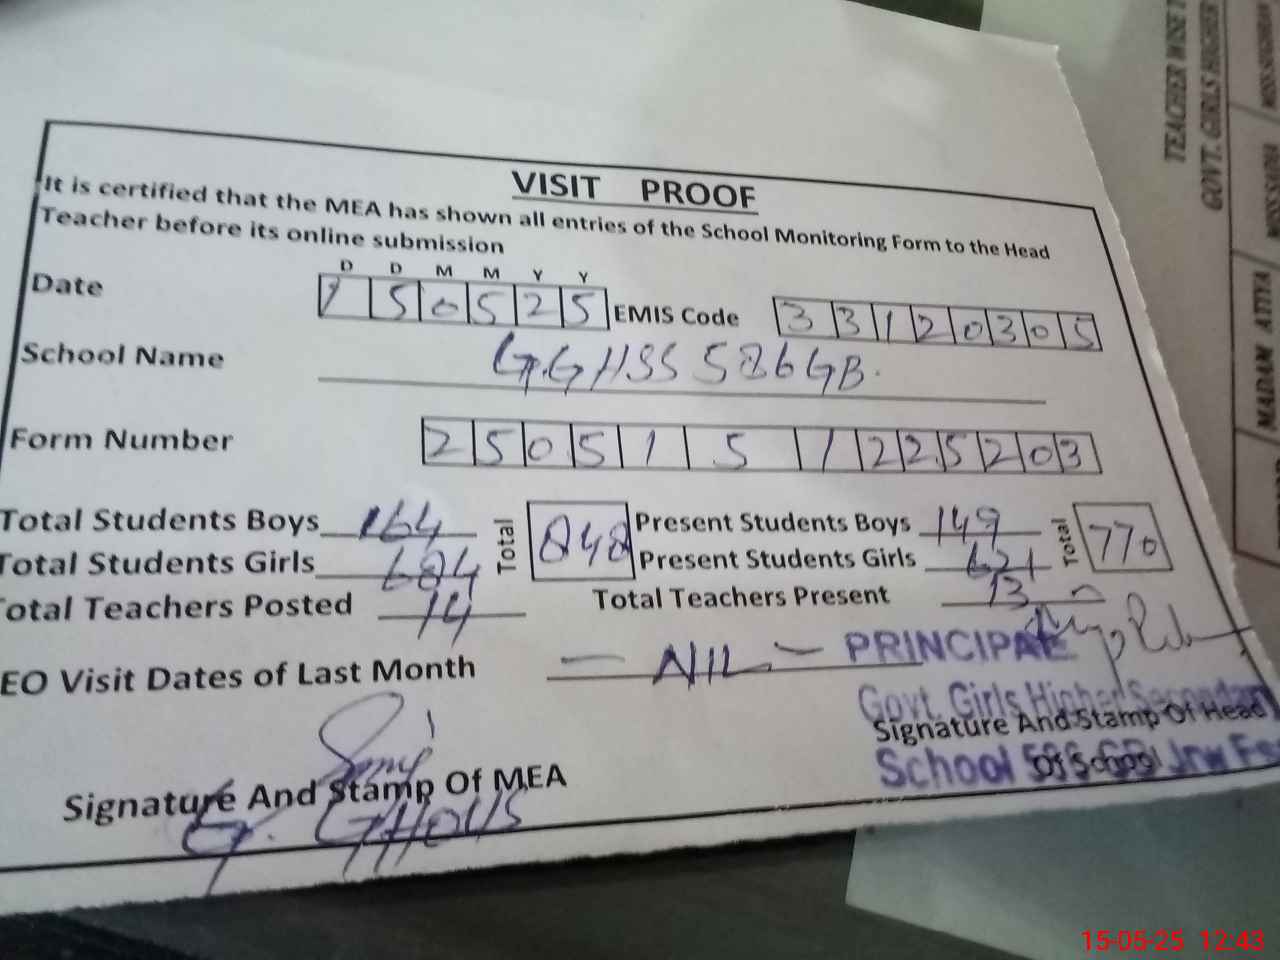 VISIT PROOF
It is certified that the MEA has shown all entries of the School Monitoring Form to the Head
Teacher before its online submission
D D M M Y Y
Date 1 5 0 5 2 5 EMIS Code 3 3 1 2 0 3 0 5
School Name G.GHSS 586GB.
Form Number 2 5 0 5 1 5 1 2 2 5 2 0 3
Total Students Boys 164 Total 848 Present Students Boys 149 Total 770
Total Students Girls 684 Present Students Girls 621
Total Teachers Posted 14 Total Teachers Present 13
EO Visit Dates of Last Month — NIL —
PRINCIPAL
Govt. Girls Higher Secondary
Signature And Stamp Of Head
Of School
School GB
Signature And Stamp Of MEA
G. GHOUS
TEACHER WISE
GOVT. GIRLS HIGHER
MADAM ATIYA
MISS SADIA
15-05-25 12:43